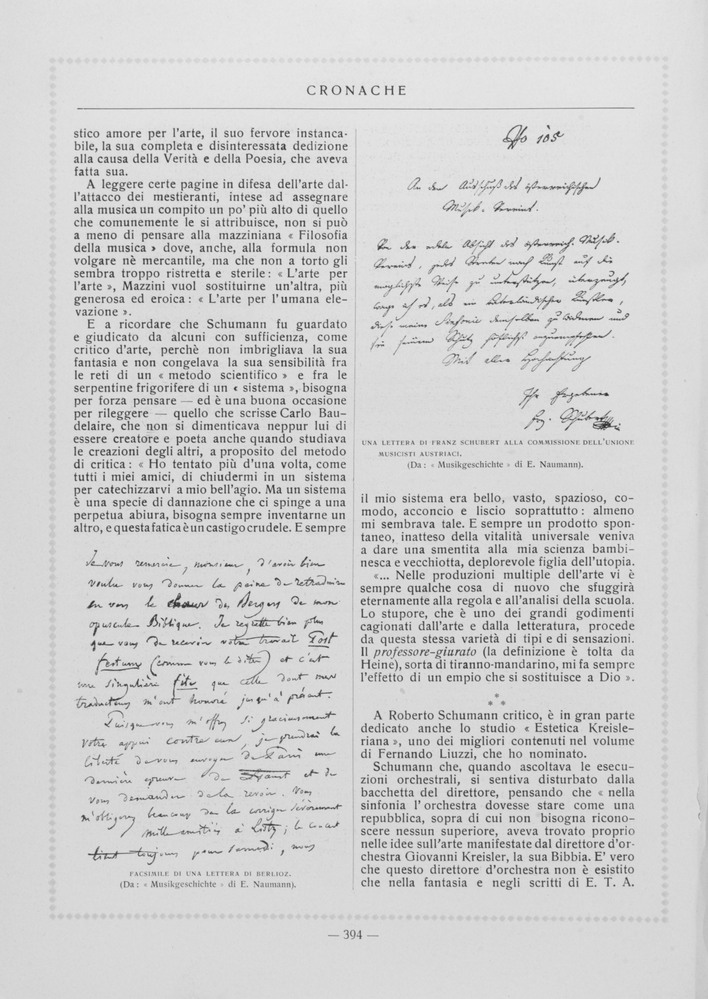 CRONACHE
stico amore per l'arte, il suo fervore instanca-
bile, la sua completa e disinteressata dedizione
alla causa della Verità e della Poesia, che aveva
fatta sua.
A leggere certe pagine in difesa dell'arte dal-
l'attacco dei mestieranti, intese ad assegnare
alla musica un compito un po' più alto di quello
che comunemente le si attribuisce, non si può
a meno di pensare alla mazziniana « Filosofia
della musica » dove, anche, alla formula non
volgare nè mercantile, ma che non a torto gli
sembra troppo ristretta e sterile : « L'arte per
l'arte », Mazzini vuol sostituirne un'altra, più
generosa ed eroica : « L'arte per l'umana ele-
vazione ».
E a ricordare che Schumann fu guardato
e giudicato da alcuni con sufficienza, come
critico d'arte, perchè non imbrigliava la sua
fantasia e non congelava la sua sensibilità fra
le reti di un « metodo scientifico » e fra le
serpentine frigorifere di un « sistema », bisogna
per forza pensare — ed è una buona occasione
per rileggere — quello che scrisse Carlo Bau-
delaire, che non si dimenticava neppur lui di
essere creatore e poeta anche quando studiava
le creazioni degli altri, a proposito del metodo
di critica : « Ho tentato più d'una volta, come
tutti i miei amici, di chiudermi in un sistema
per catechizzarvi a mio bell'agio. Ma un sistema
è una specie di dannazione che ci spinge a una
perpetua abiura, bisogna sempre inventarne un
altro, e questa fatica è un castigo crudele. E sempre
Je vous remercie, monsieur, d'avoir bien
voulu vous donner la peine de retraduire
en vers le chœur des Bergers de mon
opuscule Biblique. Je regrette bien plus
que vous de recevoir votre travail Post
festum (comme vous le dites) et c'est
une singulière fête que celle dont mes
traducteurs m'ont honoré jusqu'à présent.
Puisque vous m'offrez si gracieusement
votre appui contre eux, je prendrai la
liberté de vous envoyer de Paris une
dernière épreuve de Faust et de
vous demander de la revoir. Vous
m'obligerez beaucoup de la corriger sévèrement
mille amitiés à Liszt ; le concert
tient toujours pour samedi, mais
FACSIMILE DI UNA LETTERA DI BERLIOZ.
(Da : « Musikgeschichte » di E. Naumann).
No 105
An den Ausschuß des österreichischen
Musik-Vereins.
UNA LETTERA DI FRANZ SCHUBERT ALLA COMMISSIONE DELL'UNIONE
MUSICISTI AUSTRIACI.
(Da : « Musikgeschichte » di E. Naumann).
il mio sistema era bello, vasto, spazioso, co-
modo, acconcio e liscio soprattutto : almeno
mi sembrava tale. E sempre un prodotto spon-
taneo, inatteso della vitalità universale veniva
a dare una smentita alla mia scienza bambi-
nesca e vecchiotta, deplorevole figlia dell'utopia.
«... Nelle produzioni multiple dell'arte vi è
sempre qualche cosa di nuovo che sfuggirà
eternamente alla regola e all'analisi della scuola.
Lo stupore, che è uno dei grandi godimenti
cagionati dall'arte e dalla letteratura, procede
da questa stessa varietà di tipi e di sensazioni.
Il professore-giurato (la definizione è tolta da
Heine), sorta di tiranno-mandarino, mi fa sempre
l'effetto di un empio che si sostituisce a Dio ».
A Roberto Schumann critico, è in gran parte
dedicato anche lo studio « Estetica Kreisle-
riana », uno dei migliori contenuti nel volume
di Fernando Liuzzi, che ho nominato.
Schumann che, quando ascoltava le esecu-
zioni orchestrali, si sentiva disturbato dalla
bacchetta del direttore, pensando che « nella
sinfonia l' orchestra dovesse stare come una
repubblica, sopra di cui non bisogna ricono-
scere nessun superiore, aveva trovato proprio
nelle idee sull'arte manifestate dal direttore d'or-
chestra Giovanni Kreisler, la sua Bibbia. E' vero
che questo direttore d'orchestra non è esistito
che nella fantasia e negli scritti di E. T. A.
— 394 —